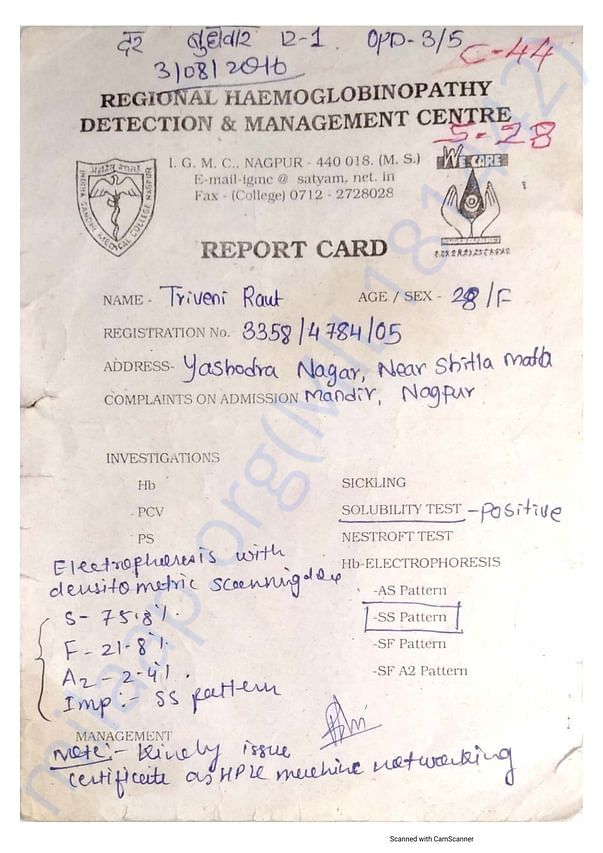 दर बुधवार 12-1 OPD-3/5
3/08/2016
C-44
REGIONAL HAEMOGLOBINOPATHY
DETECTION & MANAGEMENT CENTRE
S-28
I. G. M. C., NAGPUR - 440 018. (M. S.)
E-mail-igmc @ satyam. net. in
Fax - (College) 0712 - 2728028
WE CARE
INDIRA GANDHI MEDICAL COLLEGE NAGPUR
REPORT CARD
NAME - Triveni Raut AGE / SEX - 28/F
REGISTRATION No. 3358/4784/05
ADDRESS- Yashodra Nagar, Near Shitla mata
COMPLAINTS ON ADMISSION Mandir, Nagpur
INVESTIGATIONS
Hb SICKLING
PCV SOLUBILITY TEST - positive
PS NESTROFT TEST
Hb-ELECTROPHORESIS
Electrophoresis with
densitometric scanning done
-AS Pattern
S- 75.8%.
-SS Pattern
F- 21.8%
-SF Pattern
A2 - 2.4%.
-SF A2 Pattern
Imp:- SS pattern
MANAGEMENT
Note:- Kindly issue
certificate as HPLC machine not working
milaap.org(MIL 181442)
Scanned with CamScanner